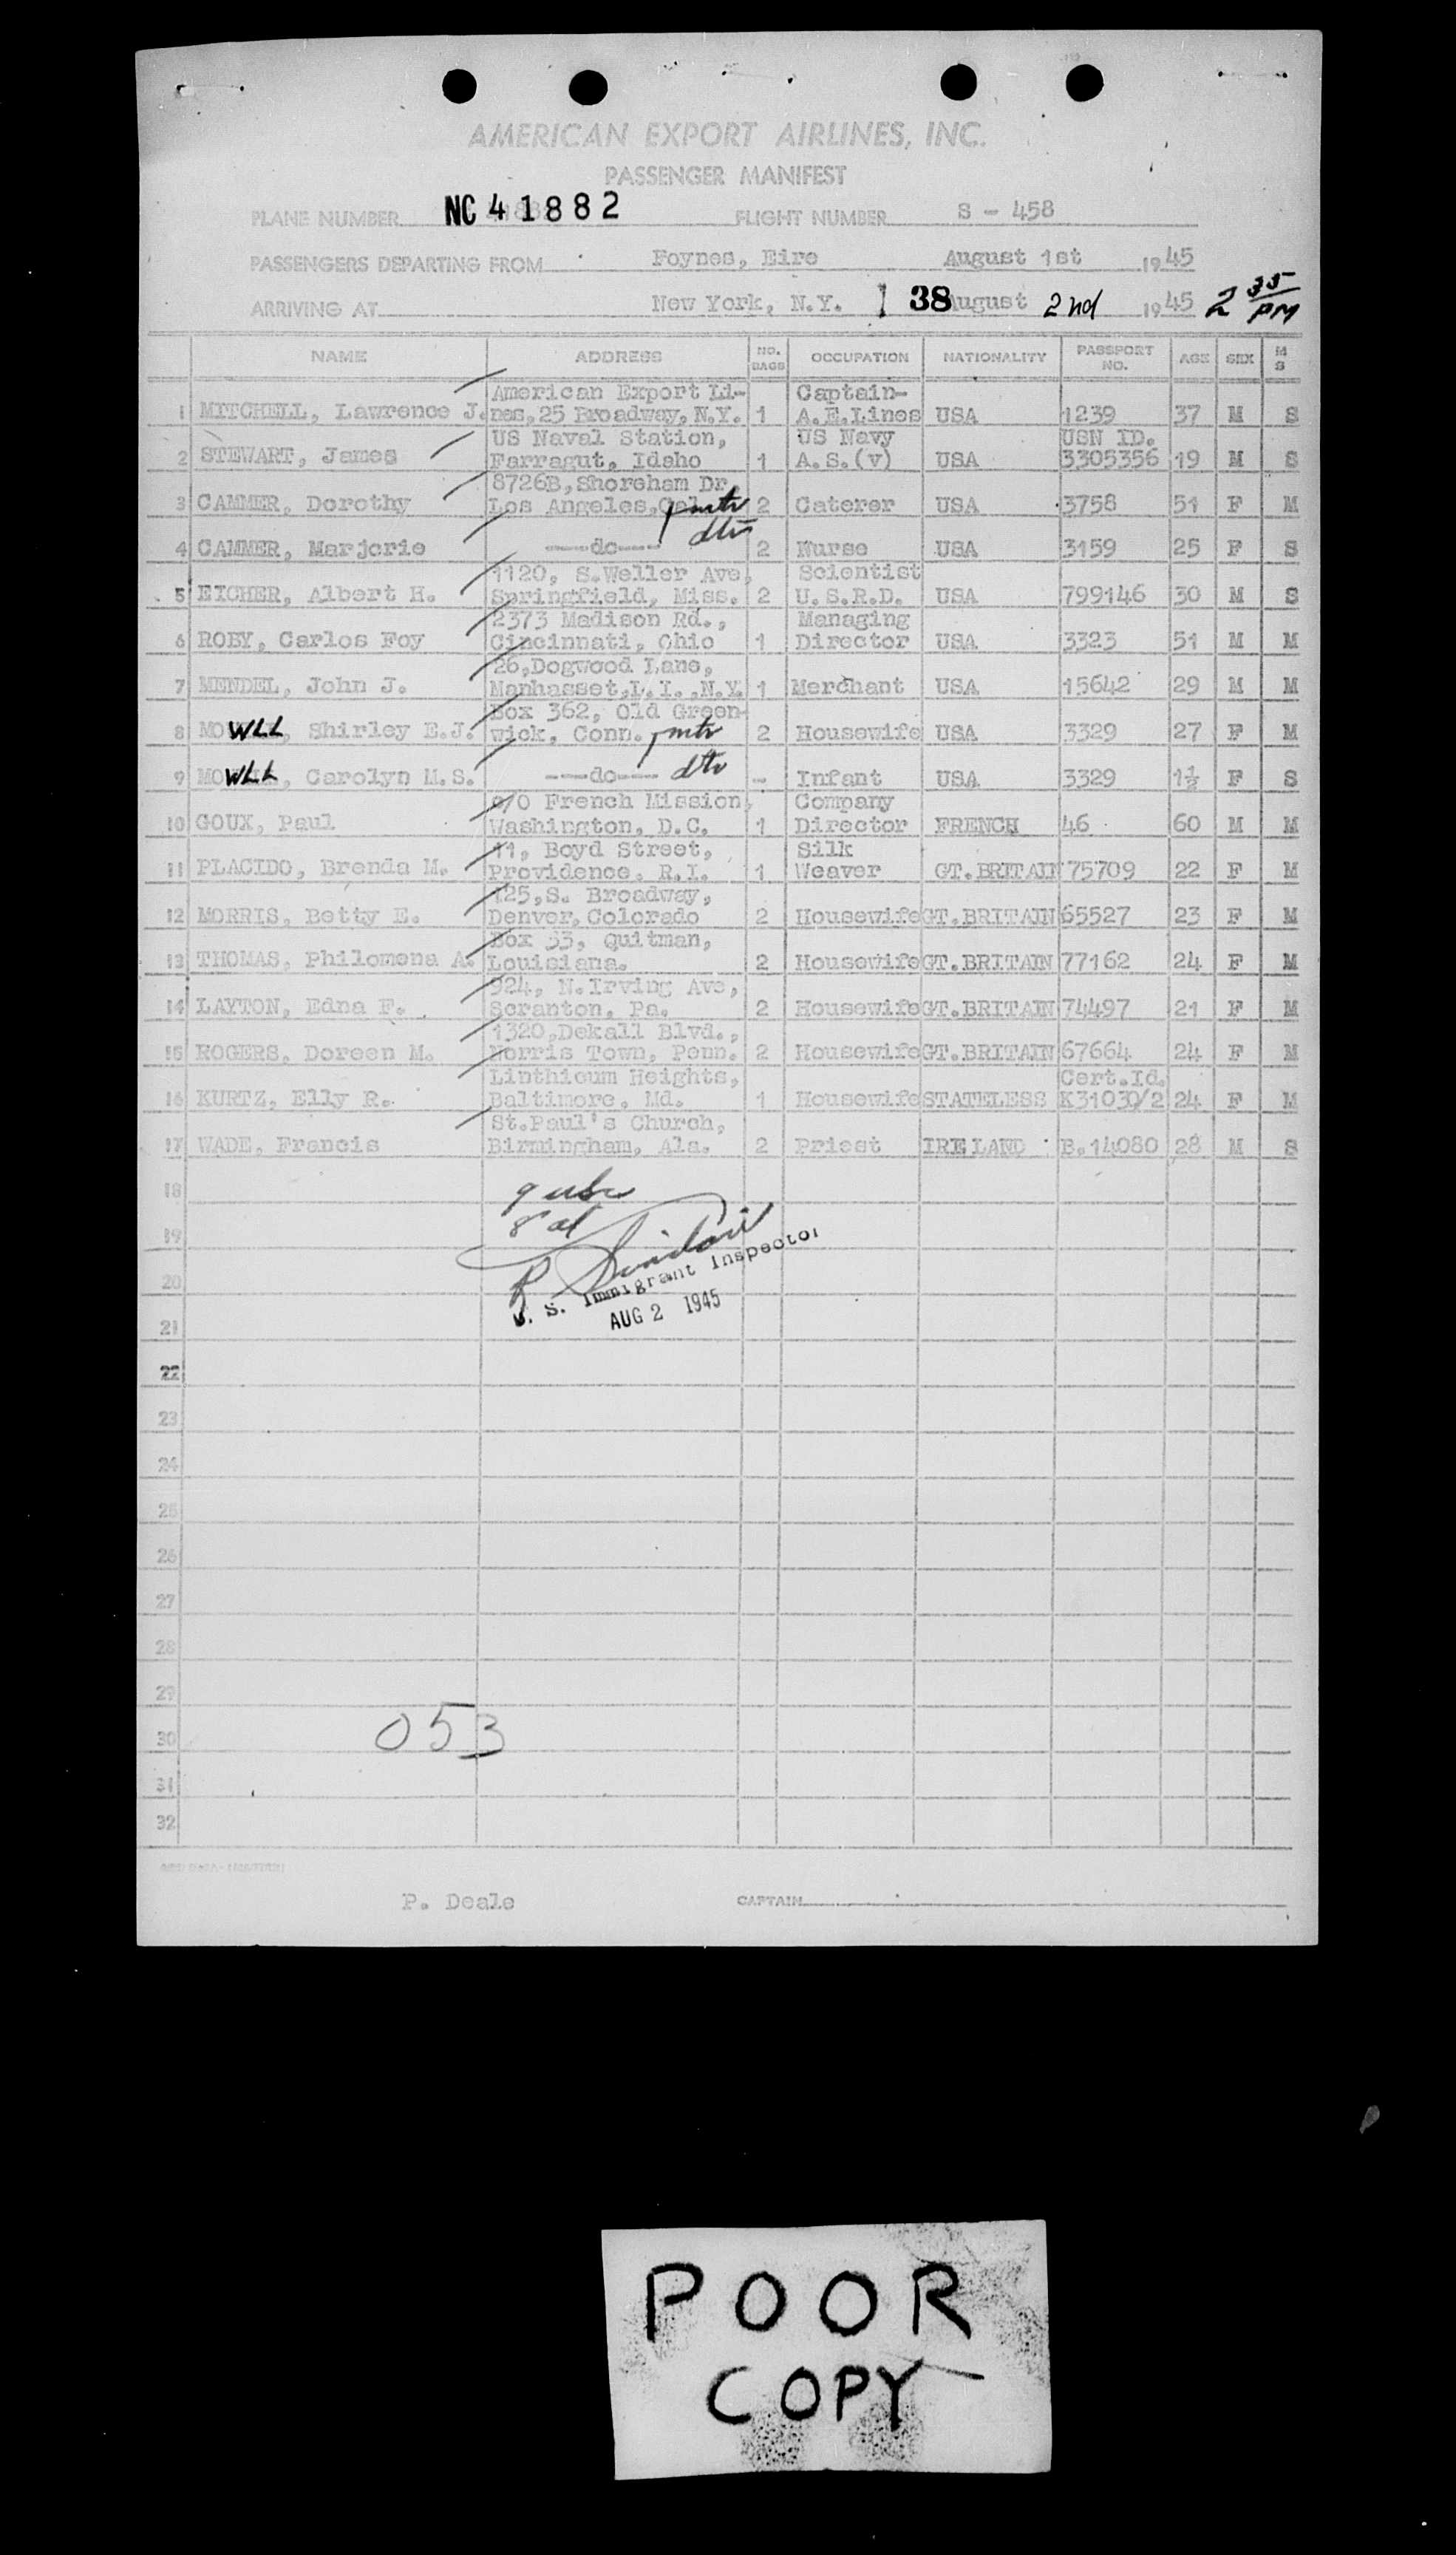 AMERICAN EXPORT AIRLINES, INC.
PASSENGER MANIFEST
PLANE NUMBER NC 41882 FLIGHT NUMBER S - 458
PASSENGERS DEPARTING FROM Foynes, Eire August 1st 1945
ARRIVING AT New York, N.Y. 1 38 August 2nd 1945 2 35/PM
NAME ADDRESS NO. BAGS OCCUPATION NATIONALITY PASSPORT NO. AGE SEX M S
American Export Li- Captain-
1 MITCHELL, Lawrence J. nes,25 Broadway,N.Y. 1 A.E.Lines USA 1239 37 M S
US Naval Station, US Navy USN ID.
2 STEWART, James Farragut, Idaho 1 A.S.(v) USA 3305356 19 M S
8726B,Shoreham Dr,
3 CAMMER, Dorothy Los Angeles, mtr 2 Caterer USA 3758 51 F M
4 CAMMER, Marjorie ---do--- dtr 2 Nurse USA 3159 25 F S
1120, S.Weller Ave, Scientist
5 EICHER, Albert H. Springfield, Miss. 2 U.S.R.D. USA 799146 30 M S
2373 Madison Rd., Managing
6 ROBY, Carlos Foy Cincinnati, Ohio 1 Director USA 3323 51 M M
26,Dogwood Lane,
7 MENDEL, John J. Manhasset,L.I.,N.Y. 1 Merchant USA 15642 29 M M
Box 362, Old Green-
8 MOWLL, Shirley E.J. wick, Conn. mtr 2 Housewife USA 3329 27 F M
9 MOWLL, Carolyn M.S. ---do--- dtr - Infant USA 3329 1½ F S
c/o French Mission, Company
10 GOUX, Paul Washington, D.C. 1 Director FRENCH 46 60 M M
11, Boyd Street, Silk
11 PLACIDO, Brenda M. Providence, R.I. 1 Weaver GT.BRITAIN 75709 22 F M
125,S. Broadway,
12 MORRIS, Betty E. Denver,Colorado 2 Housewife GT.BRITAIN 65527 23 F M
Box 33, Quitman,
13 THOMAS, Philomena A. Louisiana. 2 Housewife GT.BRITAIN 77162 24 F M
924, N.Irving Ave,
14 LAYTON, Edna F. Scranton, Pa. 2 Housewife GT.BRITAIN 74497 21 F M
1320,Dekall Blvd.,
15 ROGERS, Doreen M. Norris Town, Penn. 2 Housewife GT.BRITAIN 67664 24 F M
Linthicum Heights, Cert.Id.
16 KURTZ, Elly R. Baltimore, Md. 1 Housewife STATELESS K31030/2 24 F M
St.Paul's Church,
17 WADE, Francis Birmingham, Ala. 2 Priest IRELAND B.14080 28 M S
18
9 usc
8 al
19
20
U. S. Immigrant Inspector
AUG 2 1945
21
22
23
24
25
26
27
28
29
30 053
31
32
P. Deale CAPTAIN
POOR
COPY